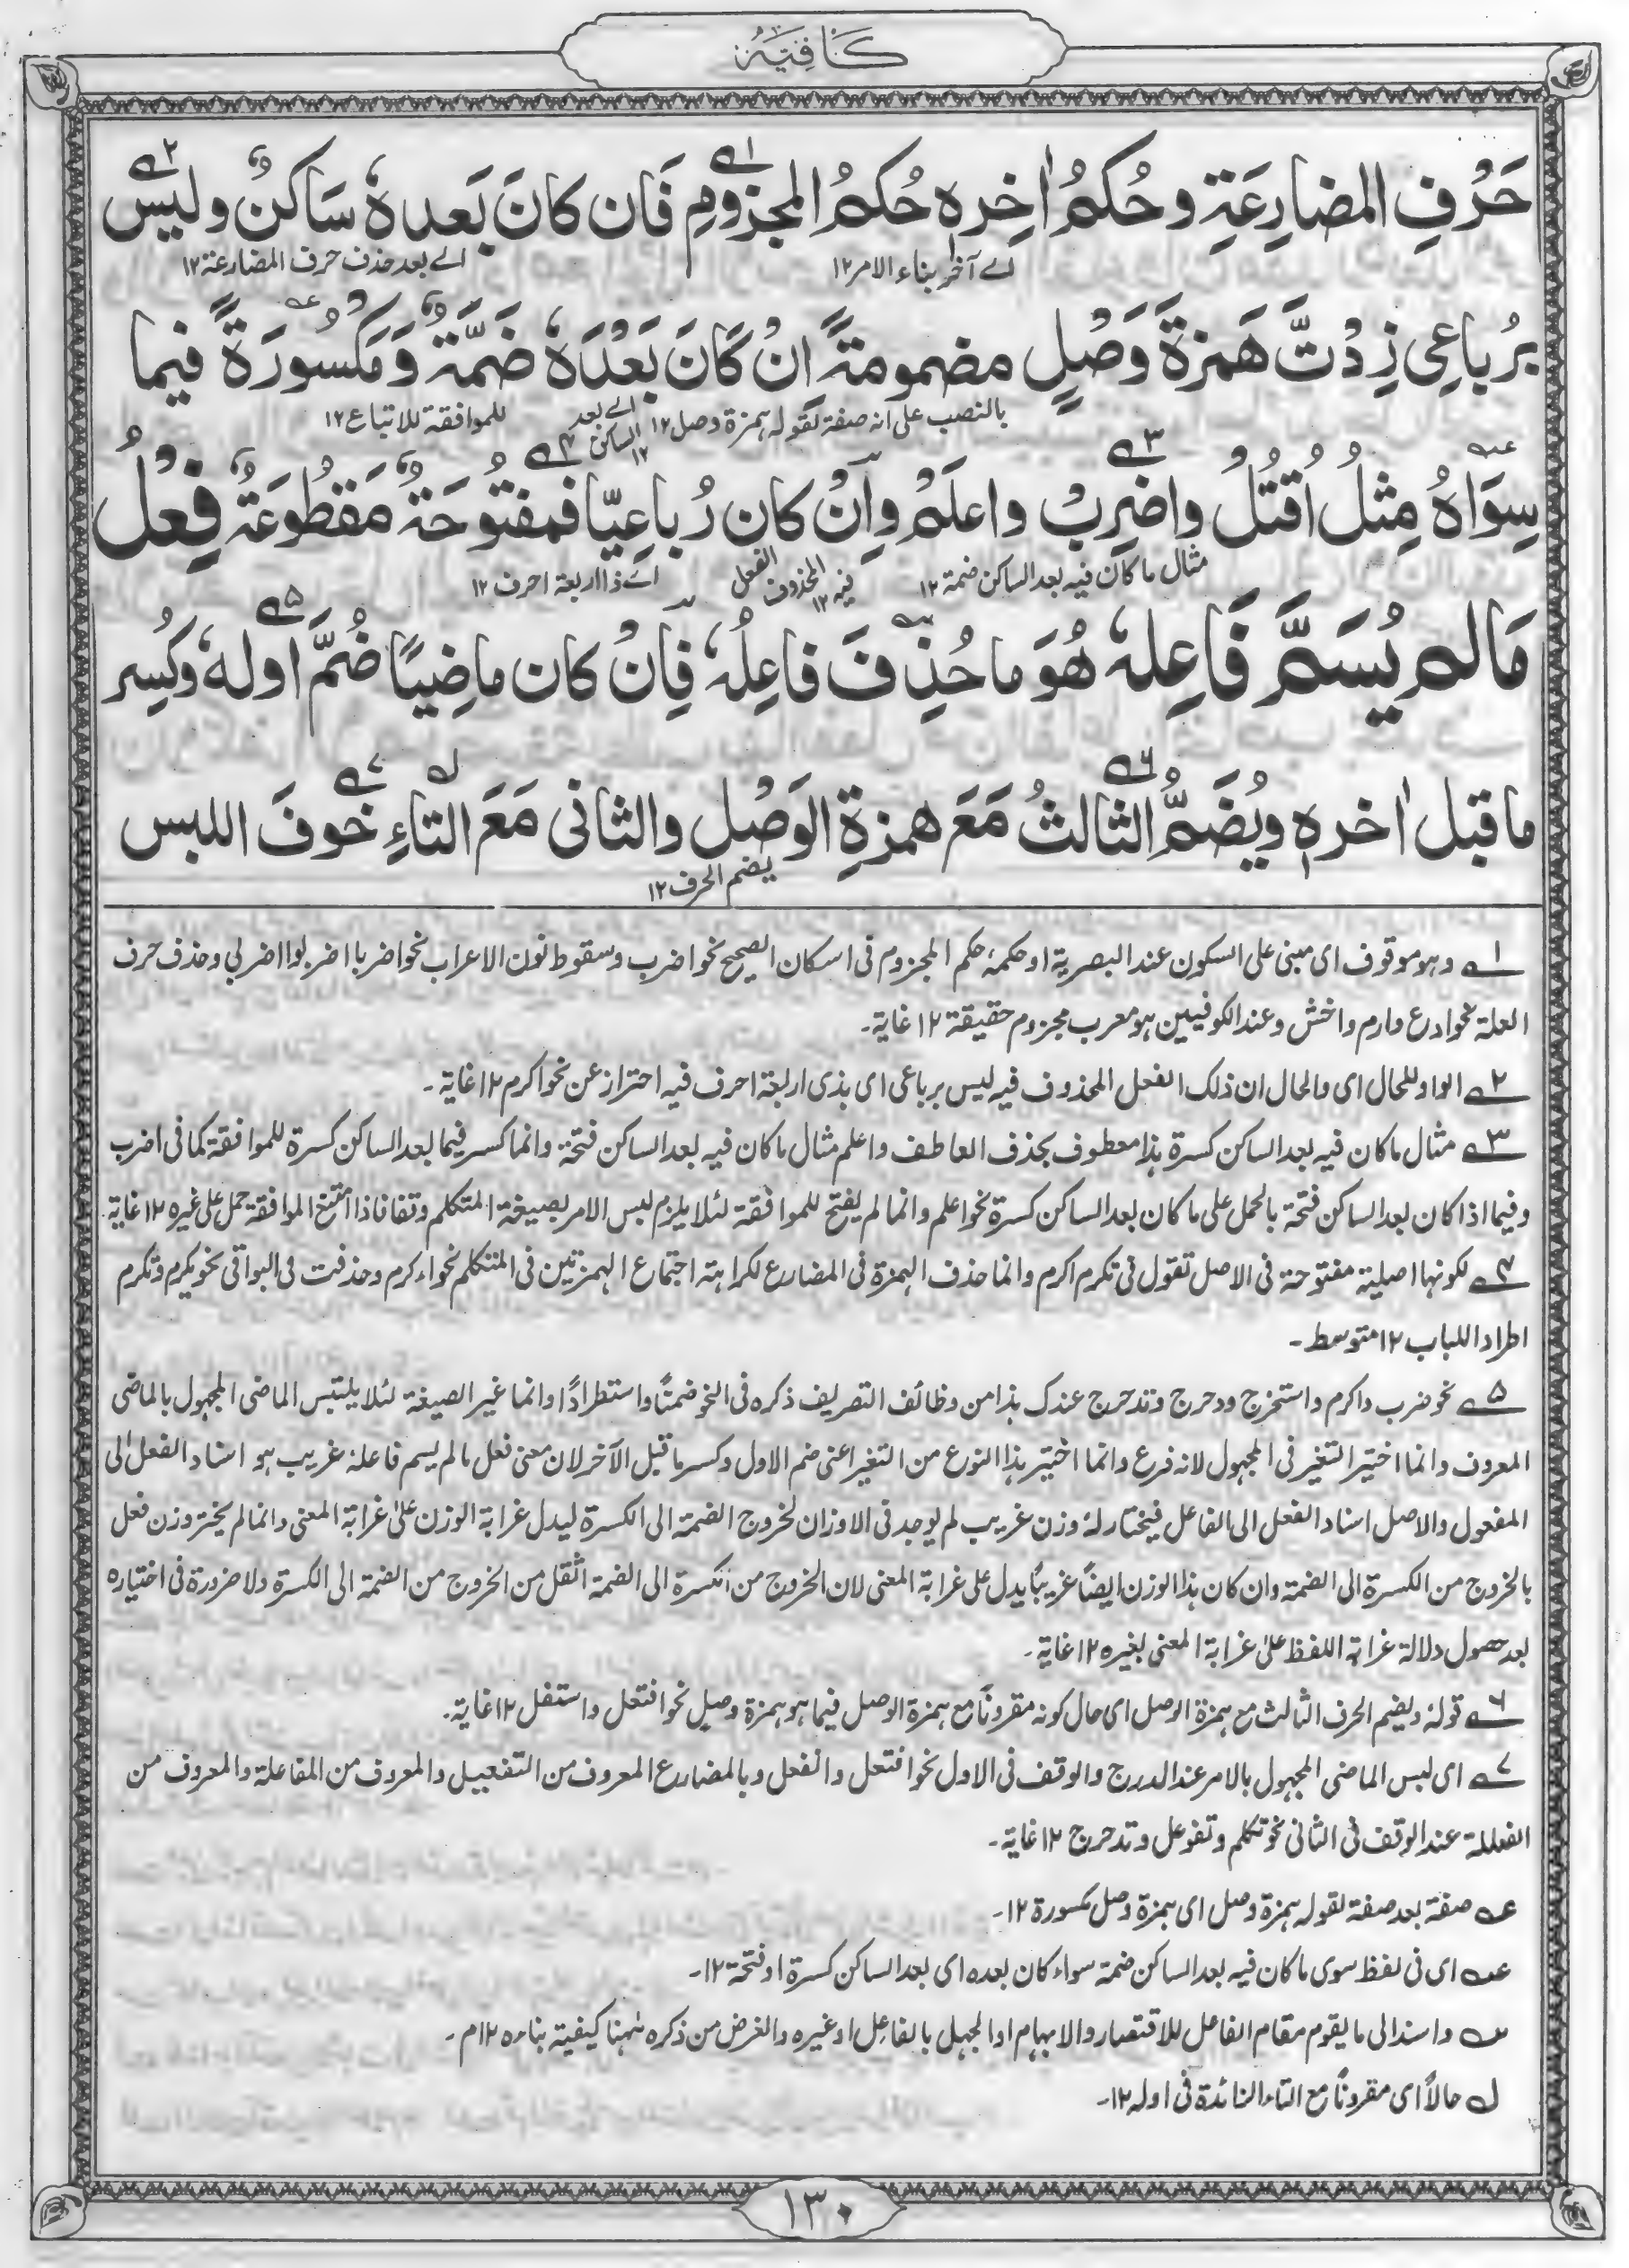 كَافِيَهْ
حَرْفِ المضارِعَةِ وحُكمُ اٰخِرِهٖ حُكمُ المجزومِ فَاِن كانَ بَعدهٗ سَاكنٌ وليسَ
اے آخر بناء الامر ۱۲
اے بعد حذف حرف المضارعة ۱۲
بِرُباعِی زِدْتَّ هَمزةَ وَصْلٍ مضمومةً اِنْ كَانَ بَعْدَهٗ ضَمَّةٌ وَمَكْسُورَةً فيما
بالنصب على انه صفة لقوله همزة وصل ۱۲
اے بعد الساكن ۱۲
للموافقة للاتباع ۱۲
سِوَاهُ مِثلُ اُقْتُلْ واضْرِبْ واعلَمْ وَاِنْ كان رُباعِيّا فمفتُوحَةٌ مَقطُوعَةٌ فِعْلُ
مثال ما كان فيه بعد الساكن ضمة ۱۲
الفعل المحذوف فيه ۱۲
اے ذا اربعة احرف ۱۲
مَالم يُسَمَّ فَاعِلهٗ هُوَ ما حُذِفَ فاعِلُهٗ فَاِنْ كان ماضِيًا ضُمَّ اولهٗ وكُسِر
ما قبل اٰخرهٖ ويُضَمُّ الثالثُ مَعَ همزةِ الوَصْل والثانى مَعَ التاءِ خوفَ اللبس
يضم الحرف ۱۲
۱ے وهو موقوف اى مبنى على السكون عند البصرية او حكمهٗ حكم المجزوم فى اسكان الصحيح نحو اضرب وسقوط نون الاعراب نحو اضربا اضربوا اضربي وحذف حرف
العلة نحو ادع وارم واخش وعند الكوفيين هو معرب مجزوم حقيقة ۱۲ غاية۔
۲ے الواو للحال اى والحال ان ذلك الفعل المحذوف فيه ليس برباعى اى بذى اربعة احرف فيه احتراز عن نحو اكرم ۱۲ غاية۔
۳ے مثال ما كان فيه بعد الساكن كسرة هذا معطوف بحذف العاطف واعلم مثال ما كان فيه بعد الساكن فتحة وانما كسر فيما بعد الساكن كسرة للموافقة كما فى اضرب
وفيما اذا كان بعد الساكن فتحة بالحمل على ما كان بعد الساكن كسرة نحو اعلم وانما لم يفتح للموافقة لئلا يلزم لبس الامر بصيغة المتكلم وقفا فاذا امتنع الموافقة حمل على غيره ۱۲ غاية
۴ے لكونها اصلية مفتوحة فى الاصل تقول فى تكرم اكرم وانما حذف الهمزة فى المضارع لكراهة اجتماع الهمزتين فى المتكلم نحو اءكرم وحذفت فى البواقى نحو يكرم وتكرم
اطرادا للباب ۱۲ متوسط۔
۵ے نحو ضرب واكرم واستخرج ودحرج وتدحرج عندك هذا من وظائف التصريف ذكره فى النحو ضمنًا واستطرادًا وانما غير الصيغة لئلا يلتبس الماضى المجهول بالماضى
المعروف وانما اختير التغير فى المجهول لانه فرع وانما اختير هذا النوع من التغير اعنى ضم الاول وكسر ما قبل الآخر لان معنى فعل ما لم يسم فاعله غريب هو اسناد الفعل الى
المفعول والاصل اسناد الفعل الى الفاعل فيختار لهٗ وزن غريب لم يوجد فى الاوزان لخروج الضمة الى الكسرة ليدل غرابة الوزن على غرابة المعنى وانما لم يختر وزن فعل
بالخروج من الكسرة الى الضمة وان كان هذا الوزن ايضًا غريبًا يدل على غرابة المعنى لان الخروج من الكسرة الى الضمة اثقل من الخروج من الضمة الى الكسرة ولا ضرورة فى اختياره
بعد حصول دلالة غرابة اللفظ على غرابة المعنى بغيره ۱۲ غاية۔
۶ے قولهٗ ويضم الحرف الثالث مع همزة الوصل اى حال كونه مقرونًا مع همزة الوصل فيما هو همزة وصل نحو افتعل واستفعل ۱۲ غاية۔
۷ے اى لبس الماضى المجهول بالامر عند الدرج والوقف فى الاول نحو افتعل وانفعل وبالمضارع المعروف من التفعيل والمعروف من المفاعلة والمعروف من
الفعللة عند الوقف فى الثانى نحو تكلم وتفوعل وتدحرج ۱۲ غاية۔
عـہ صفة بعد صفة لقوله همزة وصل اى همزة وصل مكسورة ۱۲۔
عـہ اى فى لفظ سوى ما كان فيه بعد الساكن ضمة سواء كان بعده اى بعد الساكن كسرة او فتحة ۱۲۔
سـہ واسند الى ما يقوم مقام الفاعل للاقتصار والابهام او الجهل بالفاعل او غيره والغرض من ذكره ههنا كيفية بناءه ۱۲م۔
لـہ حالاً اى مقرونًا مع التاء الزائدة فى اوله ۱۲۔
۱۳۰